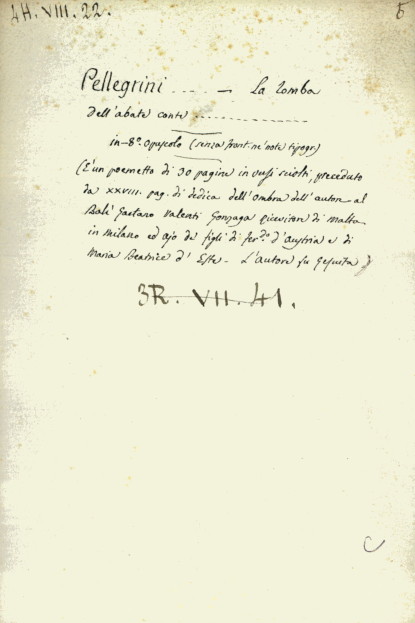 4H. VIII. 22.
6
Pellegrini .... — La Tomba
dell'abate conte ................
in-8º. opuscolo (senza front. ne' note tipogr.)
(È un poemetto di 30 pagine in versi sciolti, preceduto
da XXVIII. pag. di dedica dell'ombra dell'autore al
Balì Gaetano Valenti Gonzaga ricevitor di Malta
in Milano ed ajo de' figli di Fer.do d'Austria e di
Maria Beatrice d'Este — L'autore fu Gesuita)
3R. VII. 41.